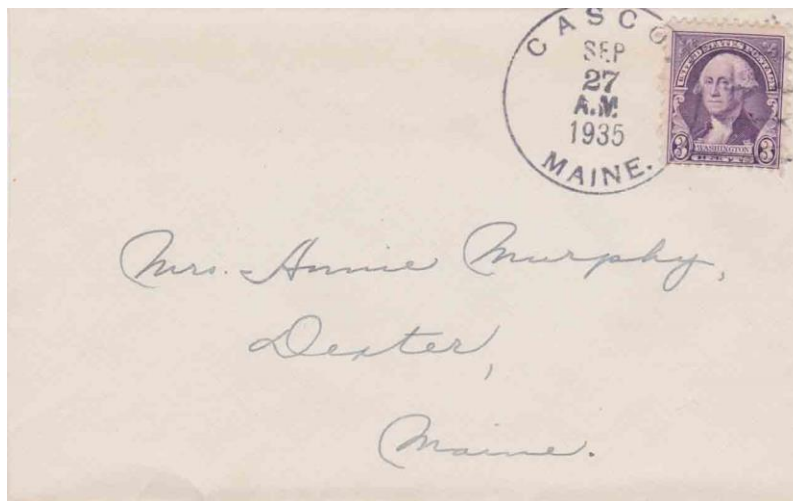 CASCO
SEP
27
A.M.
1935
MAINE.
UNITED STATES POSTAGE
WASHINGTON
3 3
Mrs. Annie Murphy,
Dexter,
Maine.